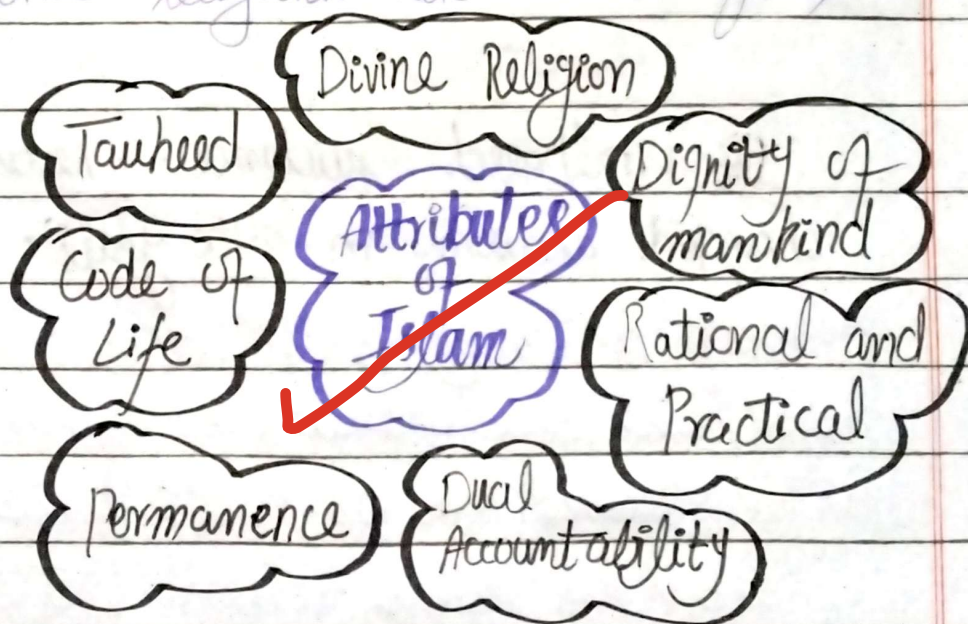 Divine Religion
Tauheed
Dignity of
mankind
Attributes
of
Islam
Code of
Life
Rational and
Practical
Permanence
Dual
Accountability